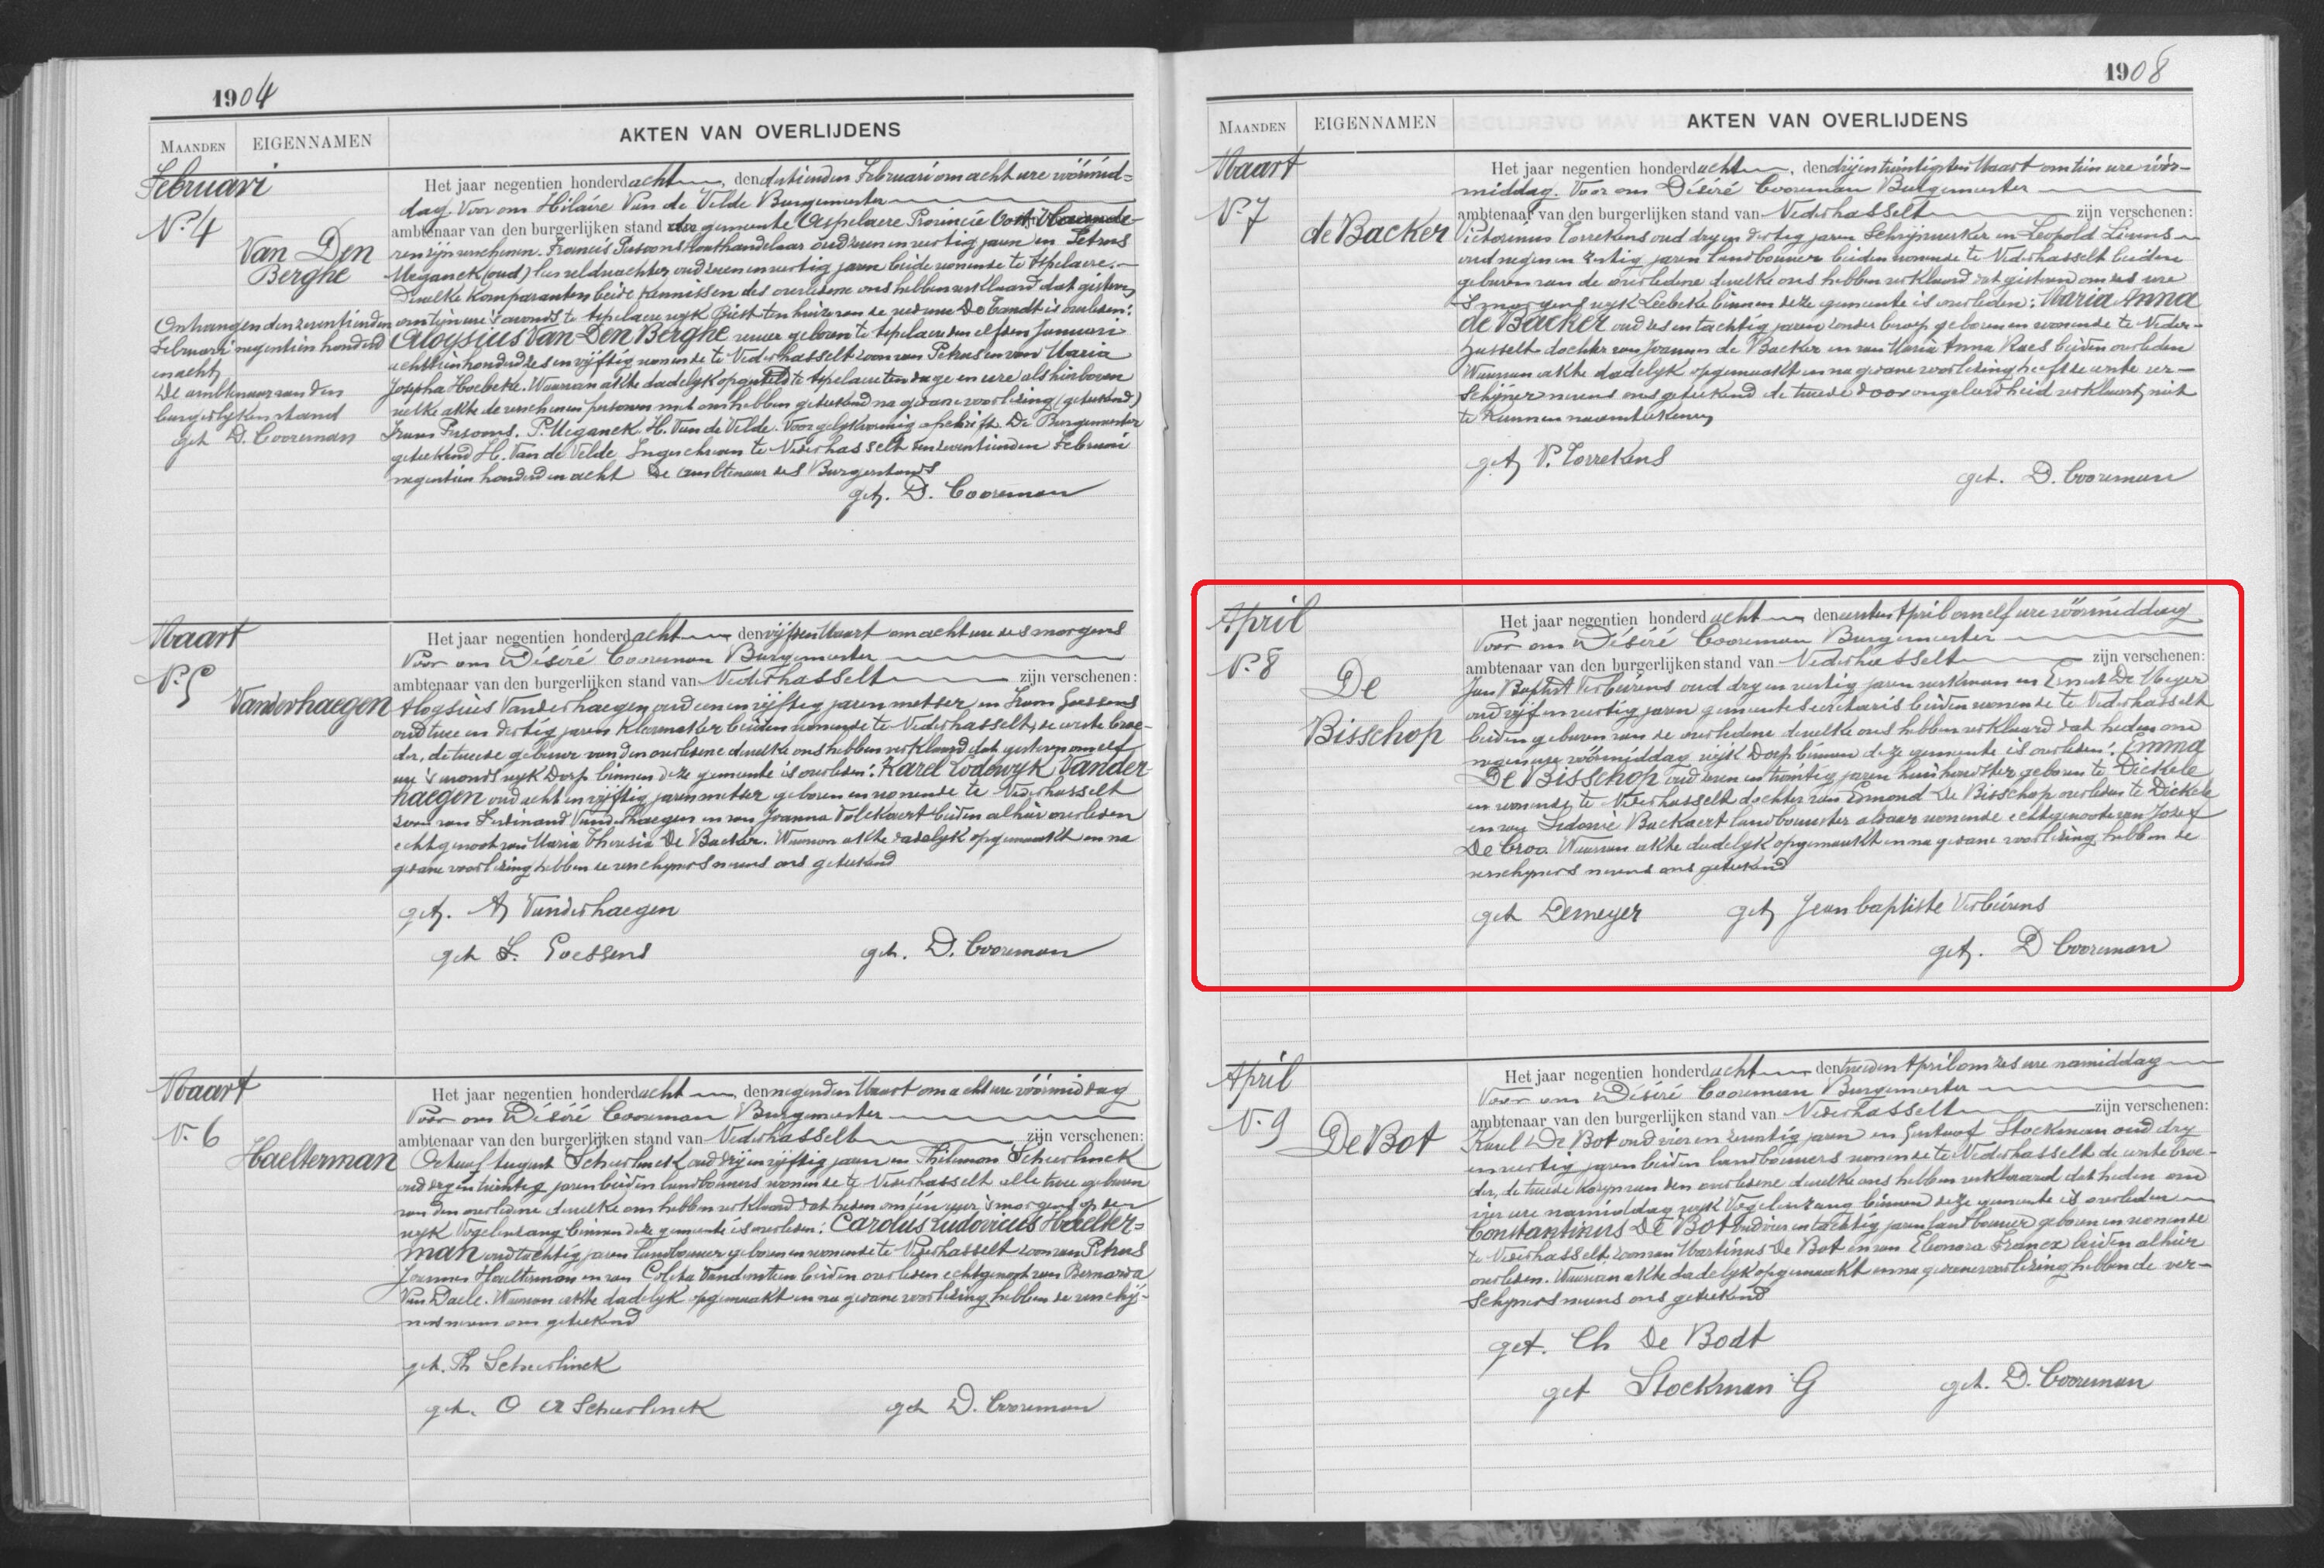 1904
MAANDEN
EIGENNAMEN
AKTEN VAN OVERLIJDENS
Februari
N.º 4
Van Den
Berghe
Ontvangen den zeventienden
Februari negentien honderd
en acht
De ambtenaar van den
burgerlyken stand
get D. Cooreman
Het jaar negentien honderd acht, den dertienden Februari om acht ure vóórmid=
dag Voor ons Hilaire Van de Velde Burgemeester
ambtenaar van den burgerlijken stand der gemeente Aspelaere Provincie Oost Vlaande
ren zijn verschenen. Francis Persoons houthandelaar oud zeven en veertig jaren en Petrus
Meganck (oud) les veldwachter oud zeven en veertig jaren beide wonende te Aspelaere.
Dewelke komparanten beide kennissen des overledene ons hebben verklaard dat gisteren
om tijn ure 's avonds te Aspelaere wyk Giest ten huize van de weduwe De Candt is overleden:
Aloysius Van Den Berghe wever geboren te Aspelaere den elfden Januari
achttien honderd zes en vijftig wonende te Nederhasselt zoon van Petrus en van Maria
Josepha Hoebeke. Waarvan akte dadelyk opgesteld te Aspelaere ten dage en ure als hierboven
welke akte de verschenen personen met ons hebben geteekend na gedane voorlezing (geteekend)
Frans Persoons. P. Meganck. H. Van de Velde. Voor gelykvormig afschrift De Burgemeester
geteekend H. Van de Velde Ingeschreven te Nederhasselt den zeventienden Februari
negentien honderd en acht De ambtenaar des Burgerstands
get. D. Cooreman
Maart
N.º 5
Vanderhaegen
Het jaar negentien honderd acht, den vijfden Maart om acht ure des morgens
Voor ons Désiré Cooreman Burgemeester
ambtenaar van den burgerlijken stand van Nederhasselt zijn verschenen:
Aloysius Vanderhaegen oud een en vijftig jaren metser en Frans Goessens
oud twee en dertig jaren kleermaker beiden wonende te Nederhasselt, de eerste broe-
der, de tweede gebuur van den overledene dewelke ons hebben verklaard dat gisteren om elf
ure 's avonds wyk Dorp binnen deze gemeente is overleden: Karel Lodewyk Vander
haegen oud acht en vijftig jaren metser geboren en wonende te Nederhasselt
zoon van Ferdinand Vanderhaegen en van Joanna Volckaert beiden alhier overleden
echtgenoot van Maria Theresia De Backer. Waarvan akte dadelyk opgemaakt en na
gedane voorlezing hebben de verschyners nevens ons geteekend
get. A Vanderhaegen
get F. Goessens
get. D. Cooreman
Maart
N. 6
Haelterman
Het jaar negentien honderd acht, den negenden Maart om acht ure vóórmiddag
Voor ons Désiré Cooreman Burgemeester
ambtenaar van den burgerlijken stand van Nederhasselt zijn verschenen:
Octaaf August Scheerlinck oud drij en vijftig jaren en Philemon Scheerlinck
oud dry en twintig jaren beiden landbouwers wonende te Nederhasselt alle twee geburen
van den overledene dewelke ons hebben verklaard dat heden om één uur 's morgens op den
wyk Vogelenzang binnen deze gemeente is overleden: Carolus Ludovicus Haelter=
man oud tachtig jaren landbouwer geboren en wonende te Nederhasselt zoon van Petrus
Joannes Haelterman en van Coleta Vandersteen beiden overleden echtgenoot van Bernarda
Van Daele. Waarvan akte dadelyk opgemaakt en na gedane voorlezing hebben de verschij-
ners nevens ons geteekend
get. Th Scheerlinck
get. O A Scheerlinck
get D. Cooreman
1908
MAANDEN
EIGENNAMEN
AKTEN VAN OVERLIJDENS
Maart
N.º 7
de Backer
Het jaar negentien honderd acht, den drijentwintigsten Maart om tien ure vóór-
middag. Voor ons Désiré Cooreman Burgemeester
ambtenaar van den burgerlijken stand van Nederhasselt zijn verschenen:
Victorinus Torrekens oud dry en dertig jaren Schrijnwerker en Leopold Lievens
oud negen en zestig jaren landbouwer beiden wonende te Nederhasselt beiden
geburen van de overledene dewelke ons hebben verklaard dat gisteren om zes ure
's morgens wyk Leebeke binnen deze gemeente is overleden: Maria Anna
de Backer oud zes en tachtig jaren zonder beroep geboren en wonende te Neder-
hasselt dochter van Joannes de Backer en van Maria Anna Raes beiden overleden
Waarvan akte dadelyk opgemaakt en na gedane voorlezing heeft de eerste ver-
schijner nevens ons geteekend de tweede door ongeleerdheid verklaart, niet
te kunnen naamteekenen
get V. Torrekens
get. D. Cooreman
April
N.º 8
De
Bisschop
Het jaar negentien honderd acht den eersten April om elf ure vóórmiddag
Voor ons Désiré Cooreman Burgemeester
ambtenaar van den burgerlijken stand van Nederhasselt zijn verschenen:
Jan Baptist Verbeirens oud dry en veertig jaren werkman en Ernest De Meyer
oud vijf en veertig jaren gemeente secretaris beiden wonende te Nederhasselt
beiden geburen van de overledene dewelke ons hebben verklaard dat heden om
negen ure vóórmiddag wijk Dorp binnen deze gemeente is overleden: Emma
De Bisschop oud zeven en twintig jaren huishoudster geboren te Dickele
en wonende te Nederhasselt dochter van Edmond De Bisschop overleden te Dickele
en van Sidonie Backaert landbouwster aldaar wonende echtgenoote van Jozef
De Croo. Waarvan akte dadelyk opgemaakt en na gedane voorlezing hebben de
verschyners nevens ons geteekend
get Demeyer
get Jean baptiste Verbeirens
get. D Cooreman
April
N. 9
De Bot
Het jaar negentien honderd acht den tweeden April om zes ure namiddag
Voor ons Désiré Cooreman Burgemeester
ambtenaar van den burgerlijken stand van Nederhasselt zijn verschenen:
Karel De Bot oud vier en zeventig jaren en Gustaaf Stockman oud dry
en veertig jaren beiden landbouwers wonende te Nederhasselt de eerste broe-
der, de tweede kozyn van den overledene dewelke ons hebben verklaard dat heden om
vier ure namiddag wyk Vogelenzang binnen deze gemeente is overleden
Constantinus De Bot oud vier en tachtig jaren landbouwer geboren en wonende
te Nederhasselt zoon van Martinus De Bot en van Eleonora Franck beiden alhier
overleden. Waarvan akte dadelyk opgemaakt en na gedane voorlezing hebben de ver-
schyners nevens ons geteekend
get. Ch De Bodt
get Stockman G
get. D. Cooreman